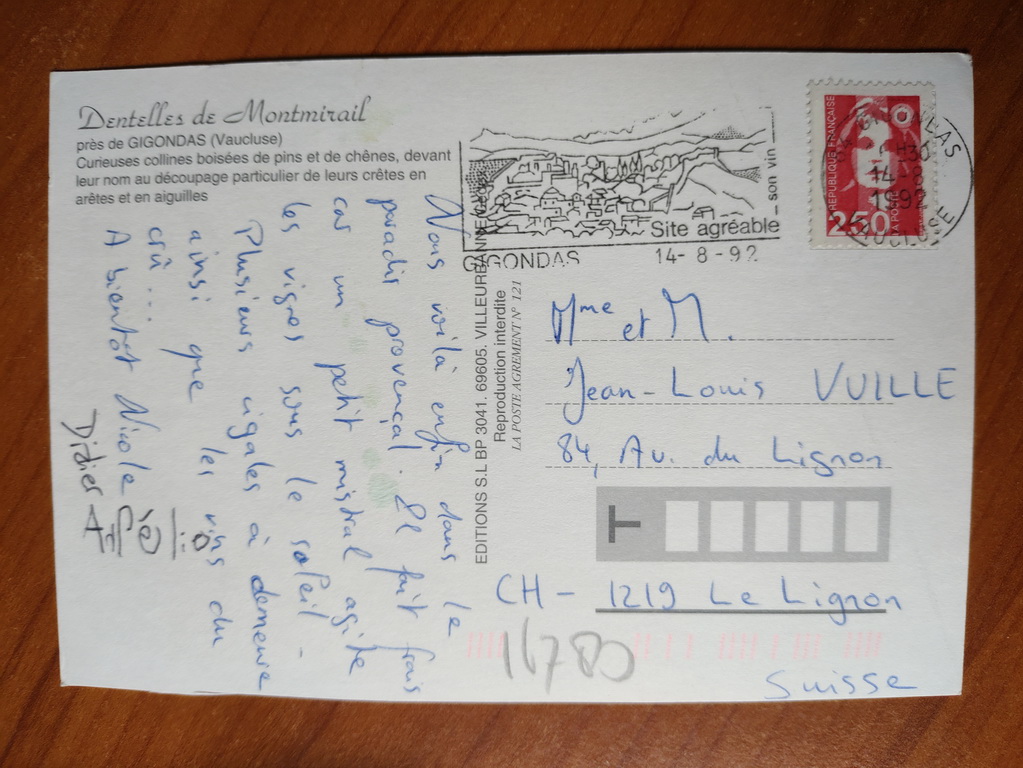 Dentelles de Montmirail
près de GIGONDAS (Vaucluse)
Curieuses collines boisées de pins et de chênes, devant
leur nom au découpage particulier de leurs crêtes en
arêtes et en aiguilles
Nous voilà enfin dans le
paradis provençal. Il fait frais
car un petit mistral agite
les vignes sous le soleil -
Plusieurs cigales à demeure
ainsi que les vins du
crû...
A bientôt Nicole
Didier
EDITIONS S.L BP 3041. 69605. VILLEURBANNE
Reproduction interdite
LA POSTE AGREMENT N° 121
Site agréable
son vin
GIGONDAS 14-8-92
REPUBLIQUE FRANÇAISE
2,50
GIGONDAS
14-8
1992
VAUCLUSE
Mme et M.
Jean-Louis VUILLE
84, Av. du Lignon
T
CH - 1219 Le Lignon
Suisse